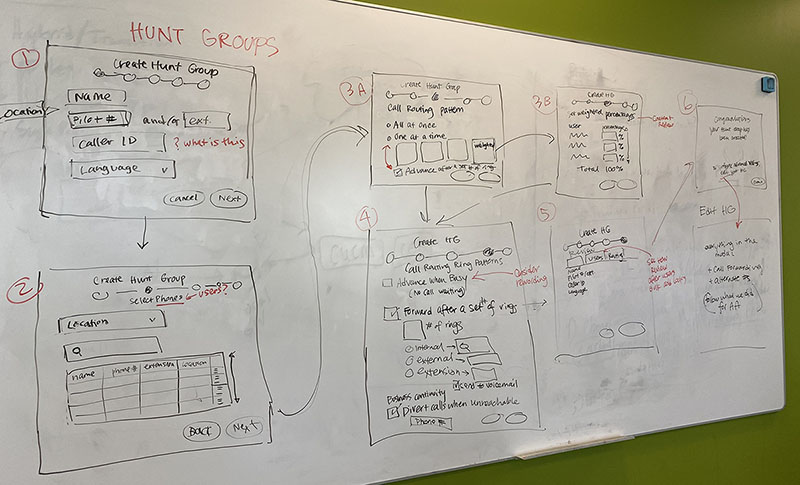 HUNT GROUPS
1
Create Hunt Group
Name
Location
Pilot # and/or ext.
Caller ID ? what is this
Language
Cancel Next
2
Create Hunt Group
select Phones users?
Location
Q
name phone# extension location
Back Next
3A
Create Hunt Group
Call Routing Pattern
All at once
One at a time
weighted
Advance after a set # of rings
3B
Create HG
weighted percentages
user percentage
%
%
%
Total 100%
4
Create HG
Call Routing Ring Patterns
Advance When Busy
(No call waiting)
Consider rewording
Forward after a set # of rings
# of rings
internal Q
external
extension
send to voicemail
Business continuity
Divert calls when Unreachable
Phone #
5
Create HG
Users
Name
Caller ID
Language
review
after users
6
Congratulations
Your
created
Edit HG
everything in the
+ call forwarding
+ alternate #s
follow what we did
for AA